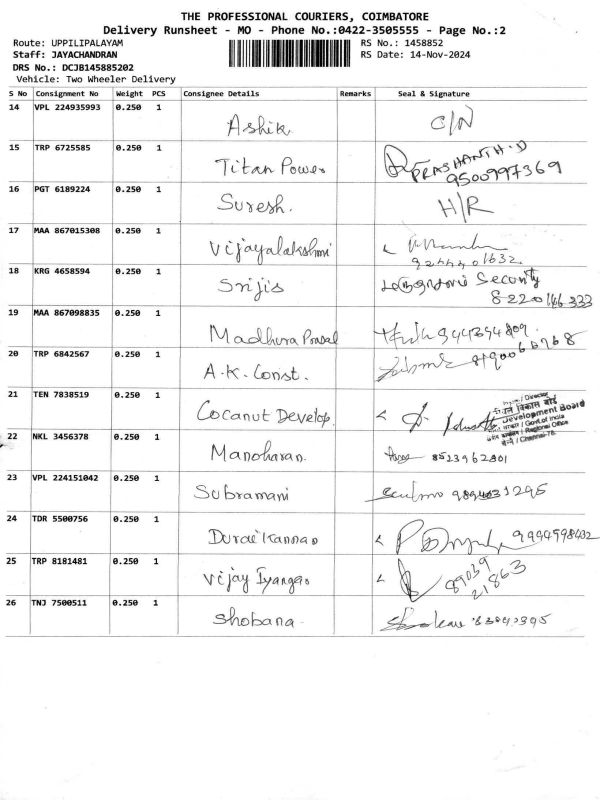 THE PROFESSIONAL COURIERS, COIMBATORE
Delivery Runsheet - MO - Phone No.:0422-3505555 - Page No.:2
Route: UPPILIPALAYAM RS No.: 1458852
Staff: JAYACHANDRAN RS Date: 14-Nov-2024
DRS No.: DCJB145885202
Vehicle: Two Wheeler Delivery
S No Consignment No Weight PCS Consignee Details Remarks Seal & Signature
14 VPL 224935993 0.250 1 Ashik C/N
15 TRP 6725585 0.250 1 Titan Power PRASHANTH.D
9500997369
16 PGT 6189224 0.250 1 Suresh. H/R
17 MAA 867015308 0.250 1 Vijayalakshmi
18 KRG 4658594 0.250 1 Srijis Security
8220146333
19 MAA 867098835 0.250 1 Madhura Prasad 944394809
20 TRP 6842567 0.250 1 A.K. Const.
21 TEN 7838519 0.250 1 Coconut Develop. / Director
विकास बोर्ड
Development Board
/ Govt.of India
/ Regional Office
/ Chennai-78.
22 NKL 3456378 0.250 1 Manoharan. 8523962801
23 VPL 224151042 0.250 1 Subramani
24 TDR 5500756 0.250 1 Durai Kannan 9994998432
25 TRP 8181481 0.250 1 Vijay Iyangar 89039
21863
26 TNJ 7500511 0.250 1 Shobana